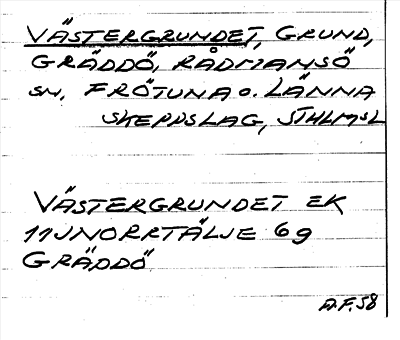 VÄSTERGRUNDET, GRUND,
GRÄDDÖ, RÅDMANSÖ
SN, FRÖTUNA O. LÄNNA
SKEPPSLAG, STHLMSL
VÄSTERGRUNDET EK
11J NORRTÄLJE 6g
GRÄDDÖ
A.F. 58